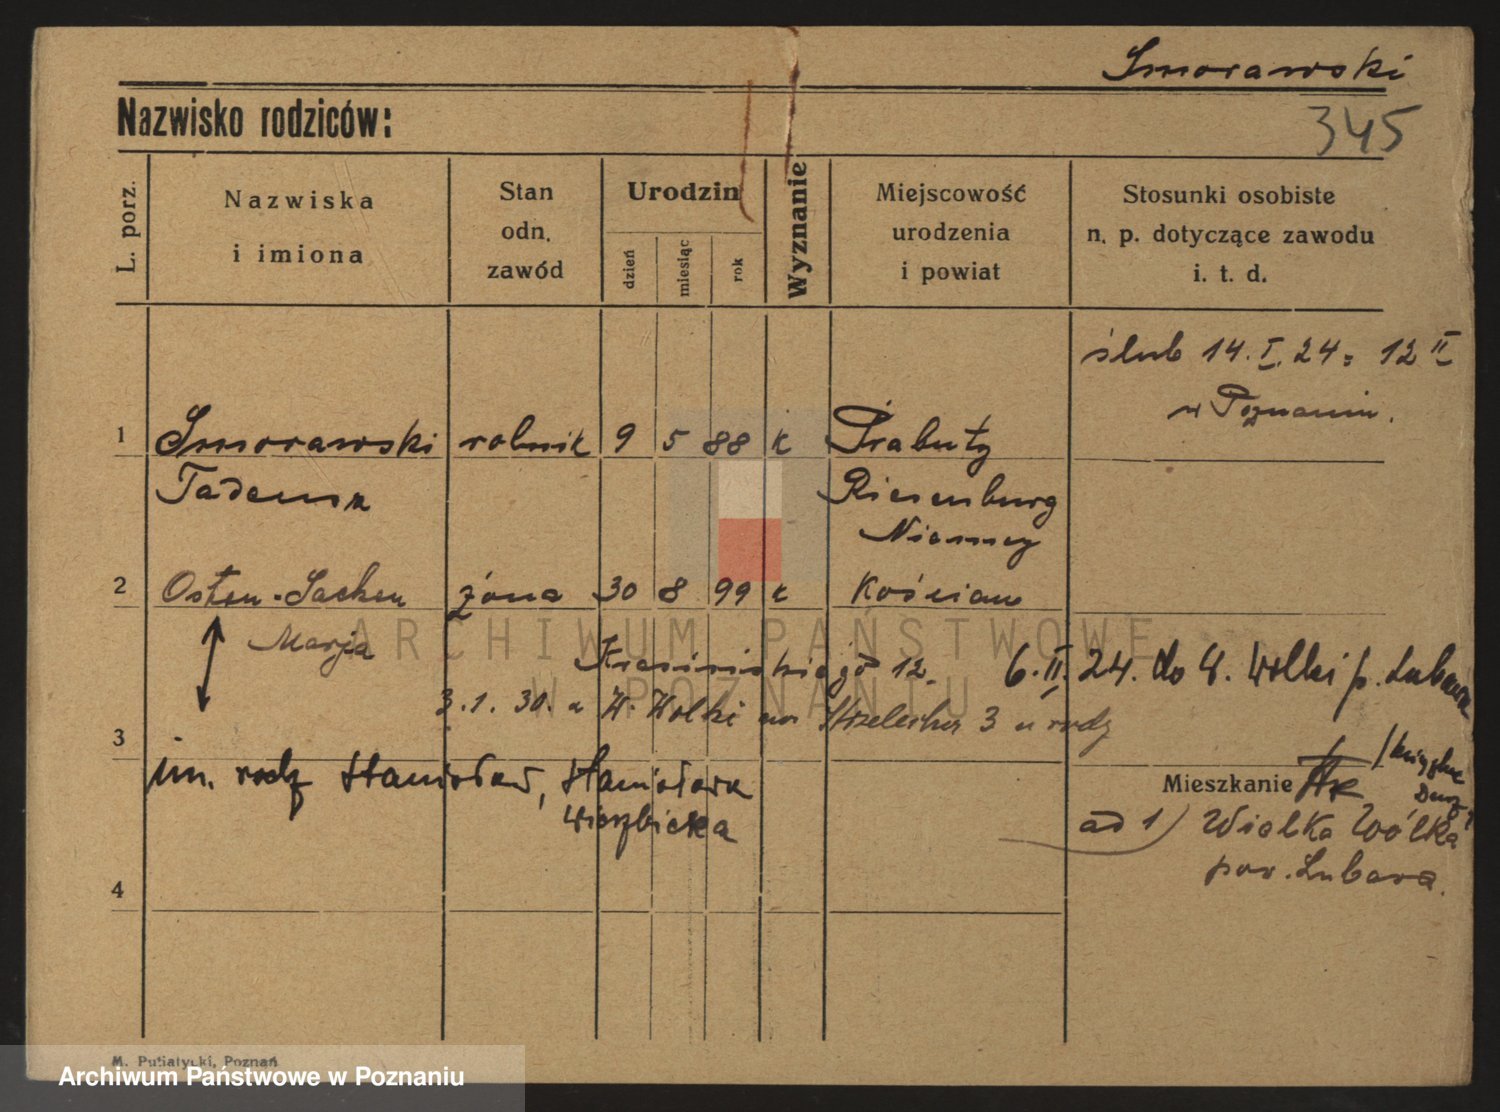 Smorawski
Nazwisko rodziców:
345
L. porz.
Nazwiska
i imiona
Stan
odn.
zawód
Urodzin
dzień
miesiąc
rok
Wyznanie
Miejscowość
urodzenia
i powiat
Stosunki osobiste
n. p. dotyczące zawodu
i. t. d.
ślub 14. I. 24 = 12 II
w Poznaniu.
1 Smorawski rolnik 9 5 88 k Prabuty
Tadeusz Riesenburg
Niemcy
2 Osten-Sacken żona 30 8 99 k Kościan
Marja
ARCHIWUM PAŃSTWOWE
W POZNANIU
12. 6. II. 24. do W. Wólki p.
3. 1. 30. z W. Wólki na Strzelecka 3 u rodz
3
im. rodz Stanisław, Stanisława
Wierzbicka
Mieszkanie
ad 1) Wielka Wólka
pow. Lubawa.
4
M. Putiatycki, Poznań
Archiwum Państwowe w Poznaniu